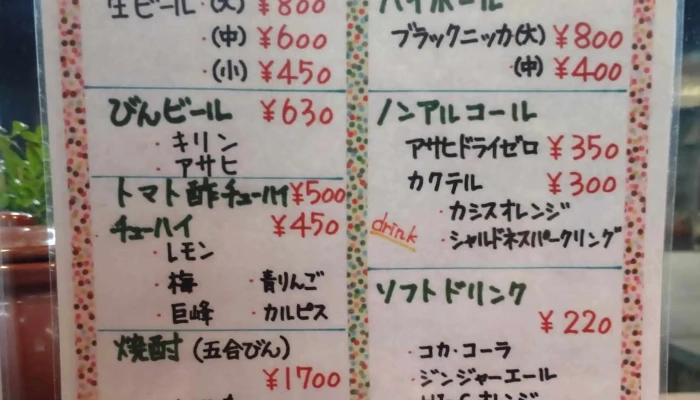 生ビール・(大) ¥800
・(中) ¥600
・(小) ¥450
びんビール ¥630
・キリン
・アサヒ
トマト酢チューハイ ¥500
チューハイ ¥450
・レモン
・梅 ・青りんご
・巨峰 ・カルピス
焼酎(五合びん)
¥1700
ハイボール
ブラックニッカ(大) ¥800
(中) ¥400
ノンアルコール
アサヒドライゼロ ¥350
カクテル ¥300
・カシスオレンジ
drink
・シャルドネスパークリング
ソフトドリンク
¥220
・コカ・コーラ
・ジンジャーエール